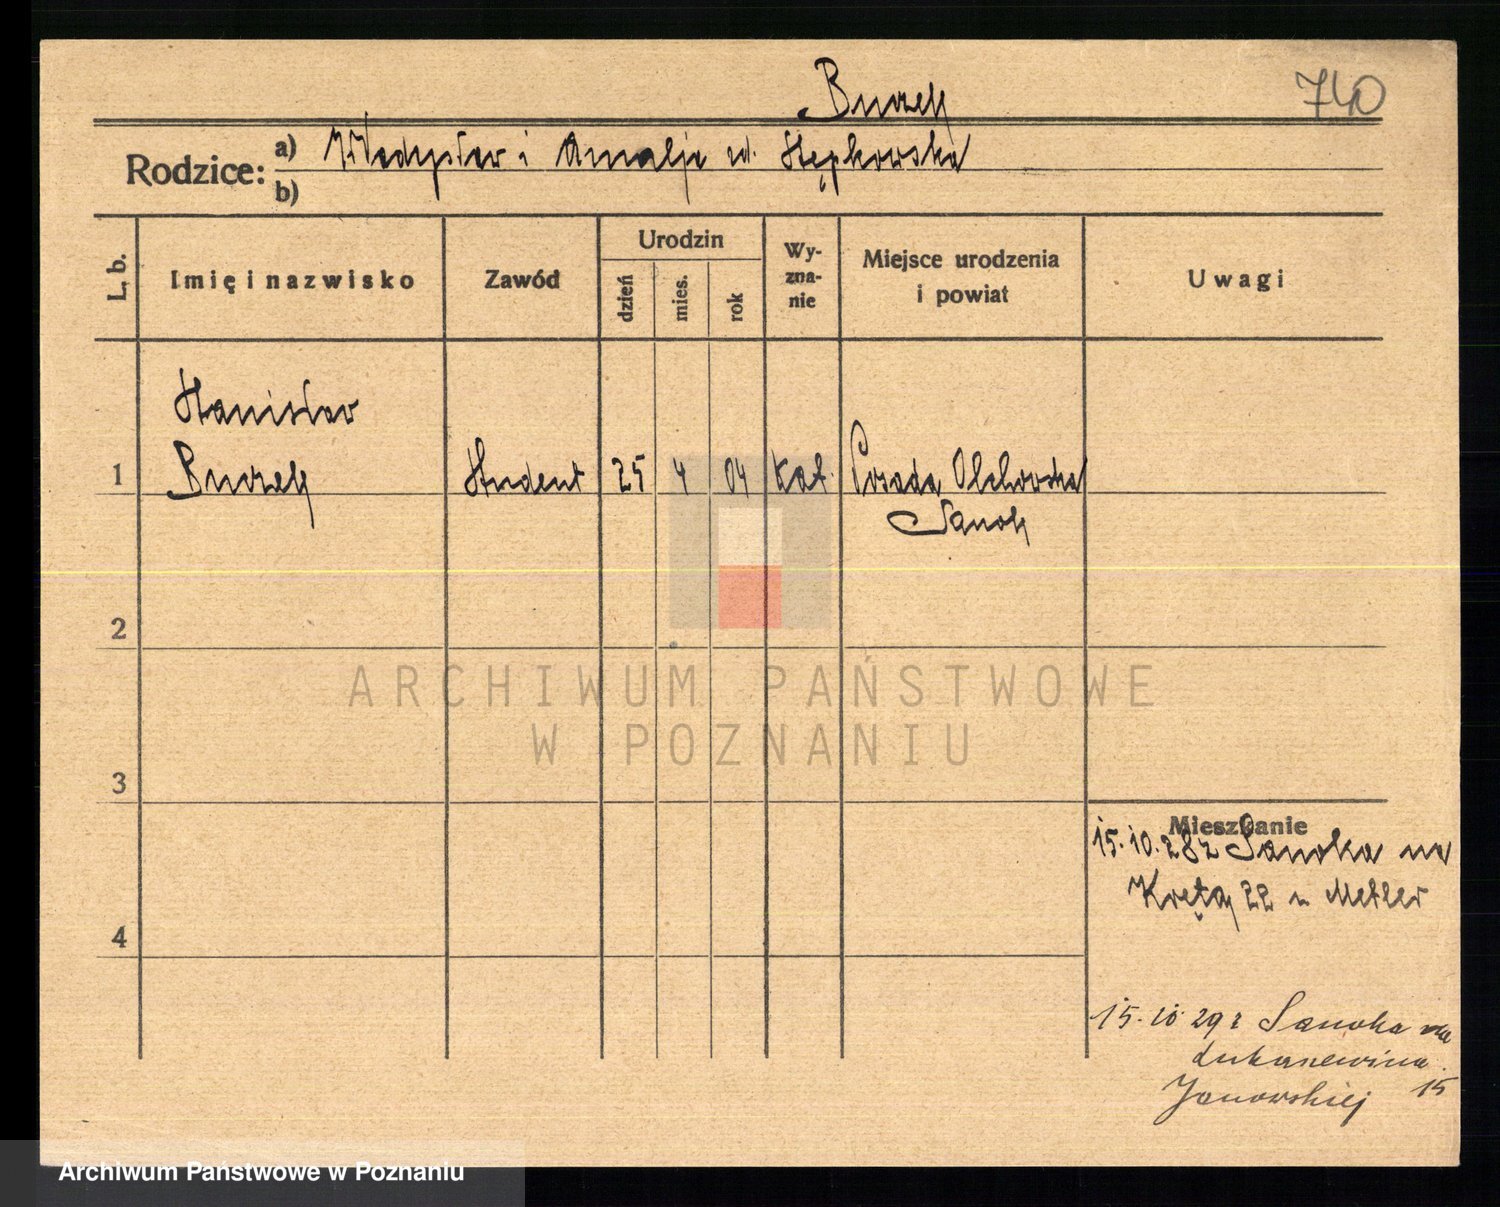 Burzek
740
Rodzice: a) Władysław i Amalja ul. Stępkowska
b)
L. b.
Imię i nazwisko
Zawód
Urodzin
dzień
mies.
rok
Wy-
zna-
nie
Miejsce urodzenia
i powiat
Uwagi
Stanisław
1 Burzek Student 25 4 04 kat. Posada Olchowska
Sanok
2
3
4
Mieszkanie
15.10.28 z Sanoka na
Krętą 22 u Metler
15.10 29 z Sanoka na
Łukaszewicza
15
Janowskiej
ARCHIWUM PAŃSTWOWE
W POZNANIU
Archiwum Państwowe w Poznaniu